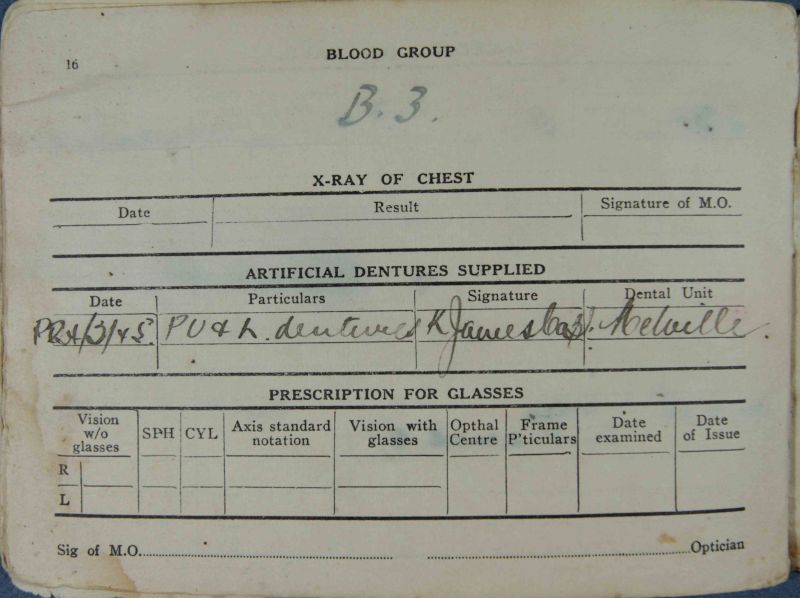 16
BLOOD GROUP
B. 3.
X-RAY OF CHEST
Date Result Signature of M.O.
ARTIFICIAL DENTURES SUPPLIED
Date Particulars Signature Dental Unit
/3/45. PU & L. dentures K James Capt. Melville.
PRESCRIPTION FOR GLASSES
Vision w/o glasses SPH CYL Axis standard notation Vision with glasses Opthal Centre Frame P'ticulars Date examined Date of Issue
R
L
Sig of M.O. Optician